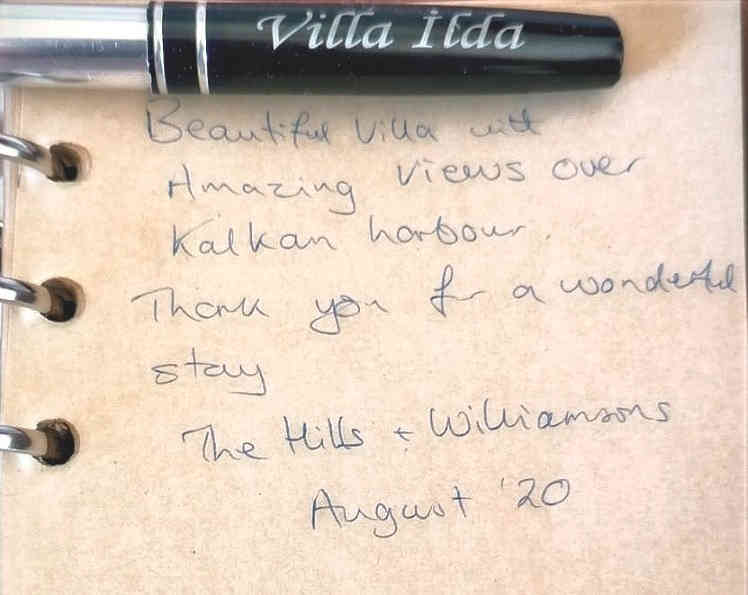 Villa İlda
Beautiful Villa with
Amazing views over
Kalkan harbour.
Thank you for a wonderful
stay
The Hills + Williamsons
August '20